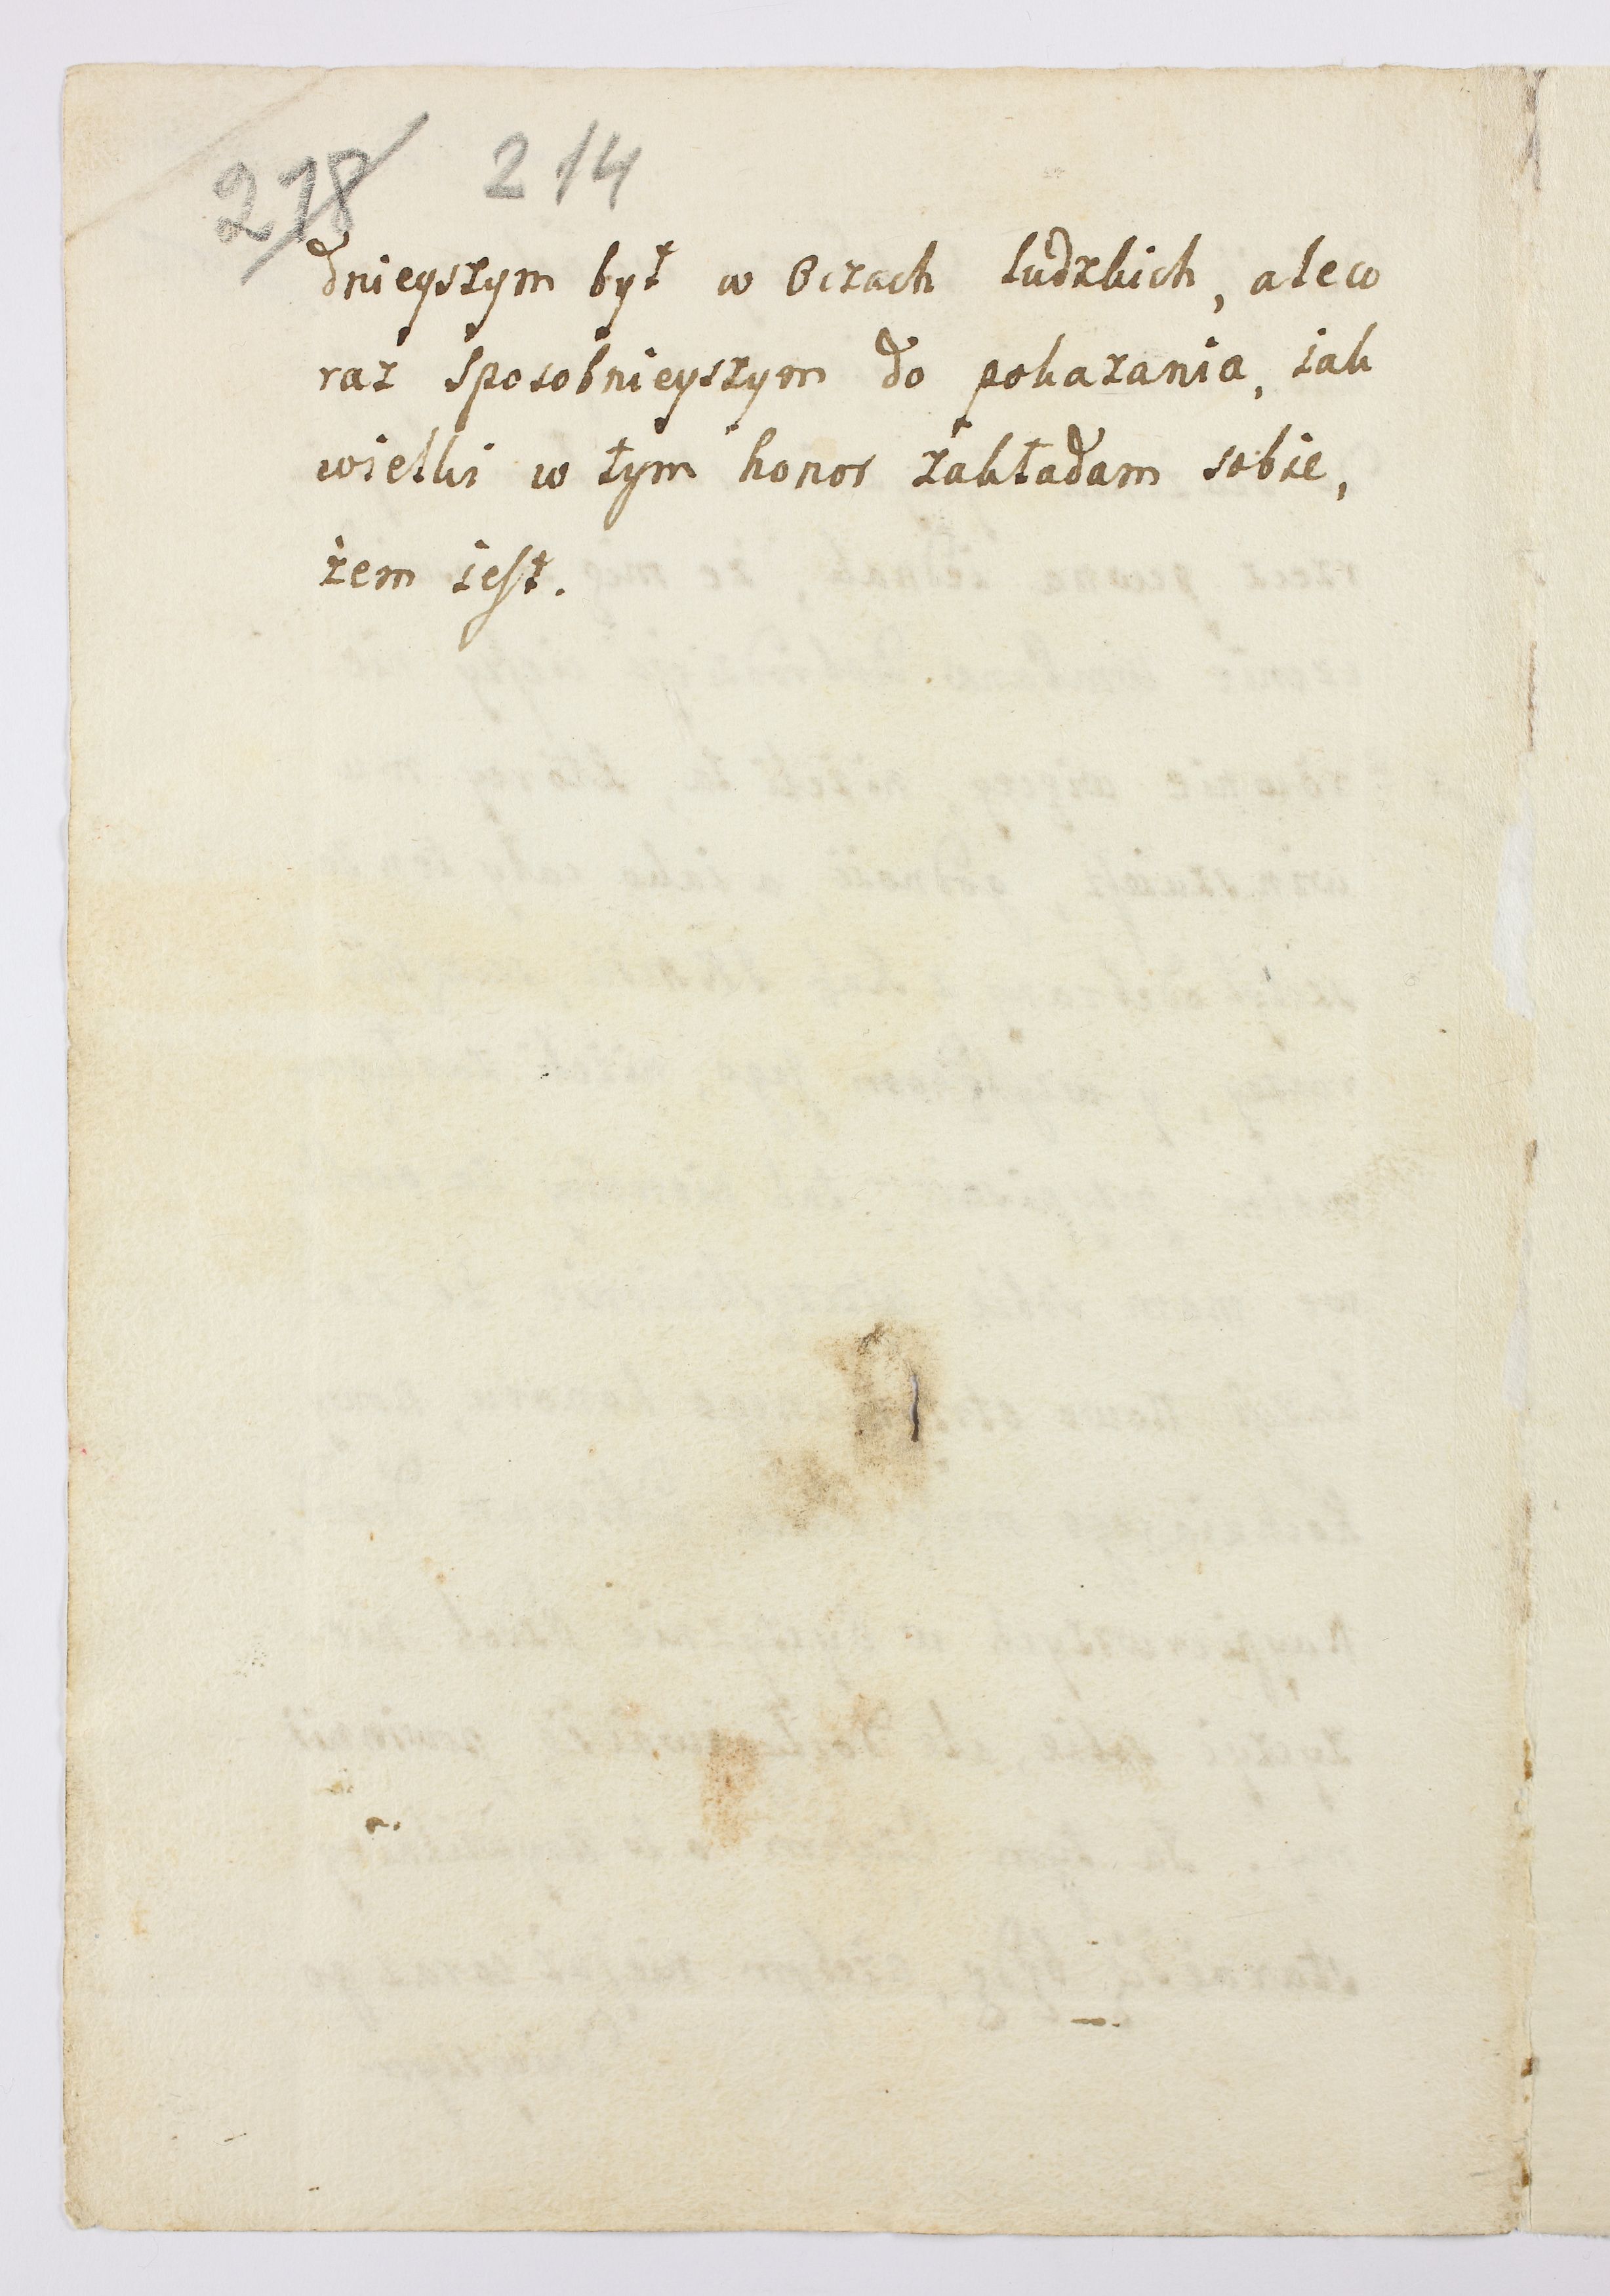 218 214
dnieyszym był w Oczach ludzkich, ale co
raz sposobnieyszym do pokazania, iak
wielki w tym honor zakładam sobie,
żem iest.